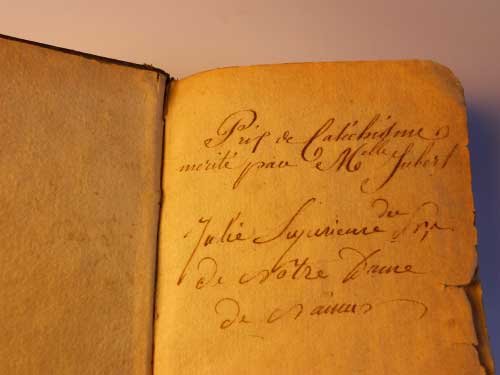 Prix de Catéchisme
merité par Melle Jubert
Julie Superieure des
de Nôtre Dame
de Namur